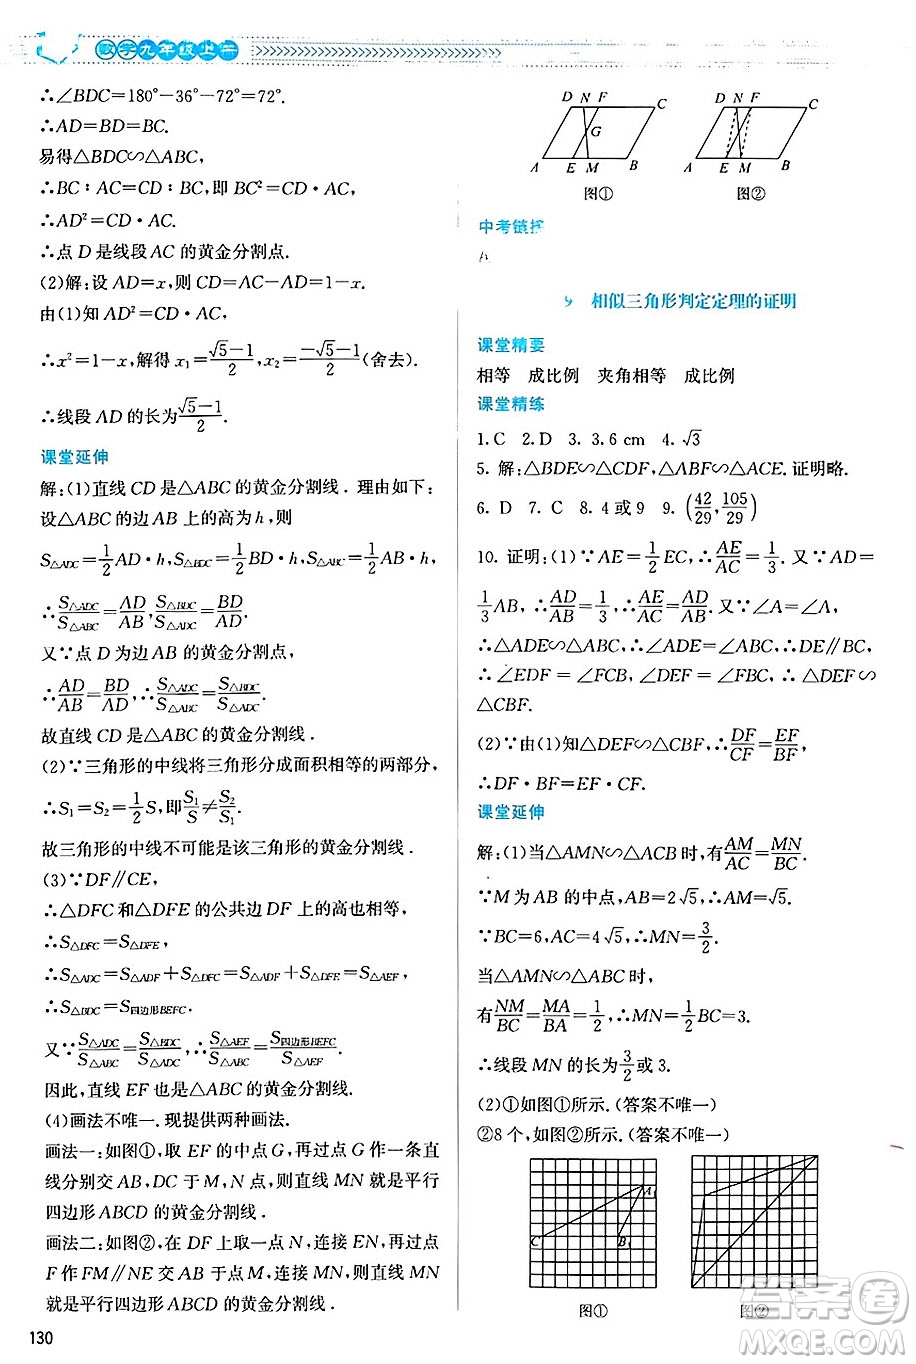 数学九年级上册
∴∠BDC=180°-36°-72°=72°.
∴AD=BD=BC.
易得△BDC∽△ABC,
∴BC∶AC=CD∶BC,即 BC²=CD·AC,
∴AD²=CD·AC.
∴点 D 是线段 AC 的黄金分割点.
(2)解:设 AD=x,则 CD=AC-AD=1-x.
由(1)知 AD²=CD·AC,
∴x²=1-x,解得 x₁=(√5-1)/2, x₂=(-√5-1)/2(舍去).
∴线段 AD 的长为(√5-1)/2.
课堂延伸
解:(1)直线 CD 是△ABC 的黄金分割线.理由如下:
设△ABC 的边 AB 上的高为 h,则
S△ADC=1/2 AD·h,S△BDC=1/2 BD·h,S△ABC=1/2 AB·h,
∴S△ADC/S△ABC=AD/AB,S△BDC/S△ADC=BD/AD.
又∵点 D 为边 AB 的黄金分割点,
∴AD/AB=BD/AD,∴S△ADC/S△ABC=S△BDC/S△ADC.
故直线 CD 是△ABC 的黄金分割线.
(2)∵三角形的中线将三角形分成面积相等的两部分,
∴S₁=S₂=1/2 S,即S₁/S≠S₂/S₁.
故三角形的中线不可能是该三角形的黄金分割线.
(3)∵DF∥CE,
∴△DFC 和△DFE 的公共边 DF 上的高也相等,
∴S△DFC=S△DFE,
∴S△ADC=S△ADF+S△DFC=S△ADF+S△DFE=S△AEF,
∴S△BDC=S四边形BEFC.
又∵S△ADC/S△ABC=S△BDC/S△ADC,∴S△AEF/S△ABC=S四边形BEFC/S△AEF.
因此,直线 EF 也是△ABC 的黄金分割线.
(4)画法不唯一.现提供两种画法.
画法一:如图①,取 EF 的中点 G,再过点 G 作一条直
线分别交 AB,DC 于 M,N 点,则直线 MN 就是平行
四边形 ABCD 的黄金分割线.
画法二:如图②,在 DF 上取一点 N,连接 EN,再过点
F 作 FM∥NE 交 AB 于点 M,连接 MN,则直线 MN
就是平行四边形 ABCD 的黄金分割线.
130
D N F C
G
A E M B
图①
D N F C
A E M B
图②
中考链接
A
9 相似三角形判定定理的证明
课堂精要
相等 成比例 夹角相等 成比例
课堂精练
1. C 2. D 3. 3.6 cm 4. √3
5. 解:△BDE∽△CDF,△ABF∽△ACE.证明略.
6. D 7. C 8. 4 或 9 9. (42/29,105/29)
10. 证明:(1)∵AE=1/2 EC,∴AE/AC=1/3. 又∵AD=
1/3 AB,∴AD/AB=1/3,∴AE/AC=AD/AB. 又∵∠A=∠A,
∴△ADE∽△ABC,∴∠ADE=∠ABC,∴DE∥BC,
∴∠EDF=∠FCB,∠DEF=∠FBC,∴△DEF∽
△CBF.
(2)∵由(1)知△DEF∽△CBF,∴DF/CF=EF/BF,
∴DF·BF=EF·CF.
课堂延伸
解:(1)当△AMN∽△ACB 时,有AM/AC=MN/BC.
∵M 为 AB 的中点,AB=2√5,∴AM=√5.
∵BC=6,AC=4√5,∴MN=3/2.
当△AMN∽△ABC 时,
有NM/BC=MA/BA=1/2,∴MN=1/2 BC=3.
∴线段 MN 的长为3/2或3.
(2)①如图①所示.(答案不唯一)
②8 个,如图②所示.(答案不唯一)
A₁
C₁
B₁
图①
图②
答案圈
MXQE.COM